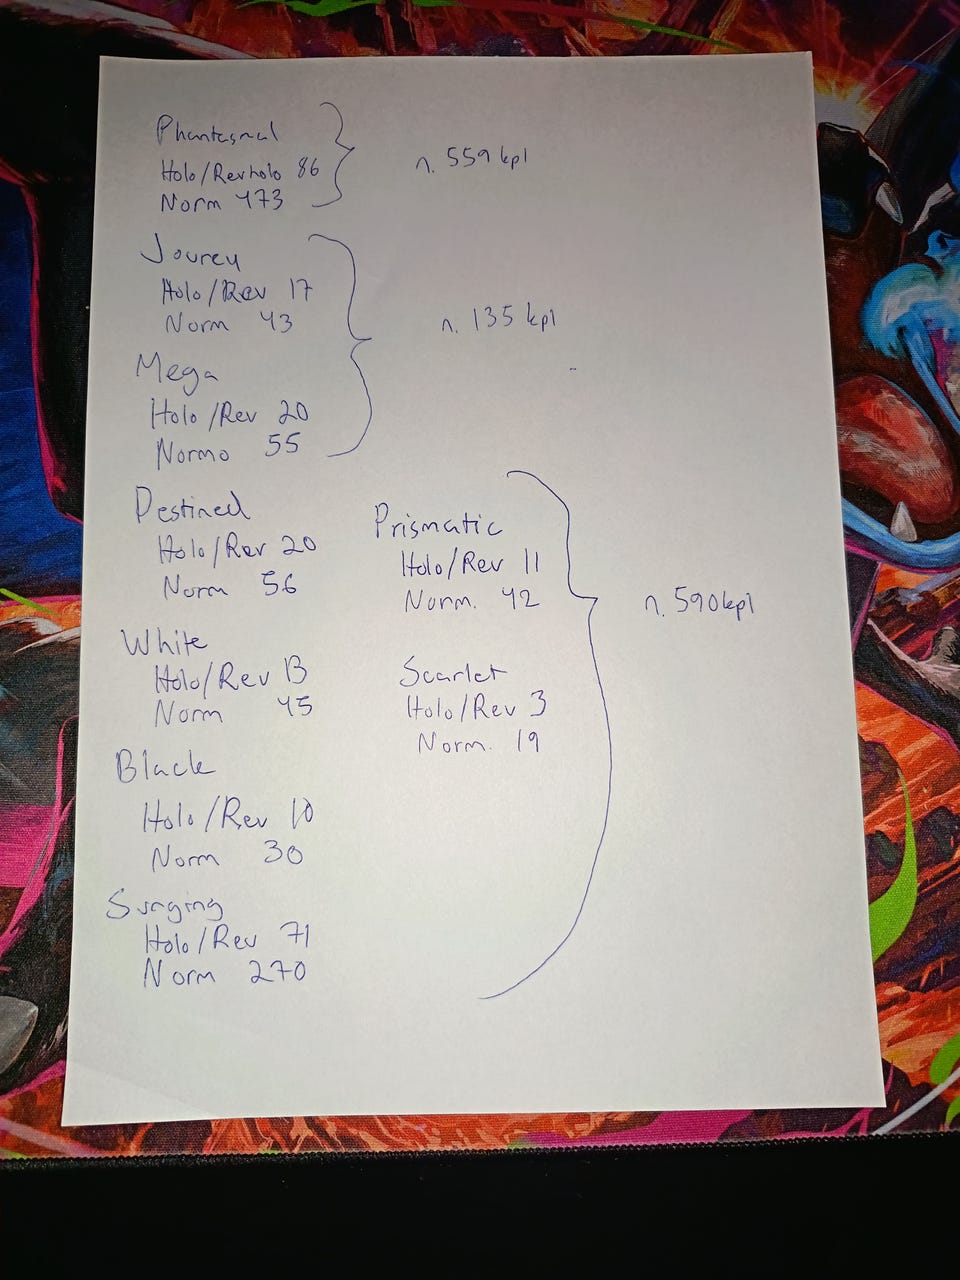 Phantasmal
Holo/Revholo 86
Norm 473
n. 559 kpl
Jourey
Holo/Rev 17
Norm 43
Mega
Holo/Rev 20
Normo 55
n. 135 kpl
Destined
Holo/Rev 20
Norm 56
White
Holo/Rev 13
Norm 45
Black
Holo/Rev 10
Norm 30
Surging
Holo/Rev 71
Norm 270
Prismatic
Holo/Rev 11
Norm. 42
Scarlet
Holo/Rev 3
Norm. 19
n. 590 kpl